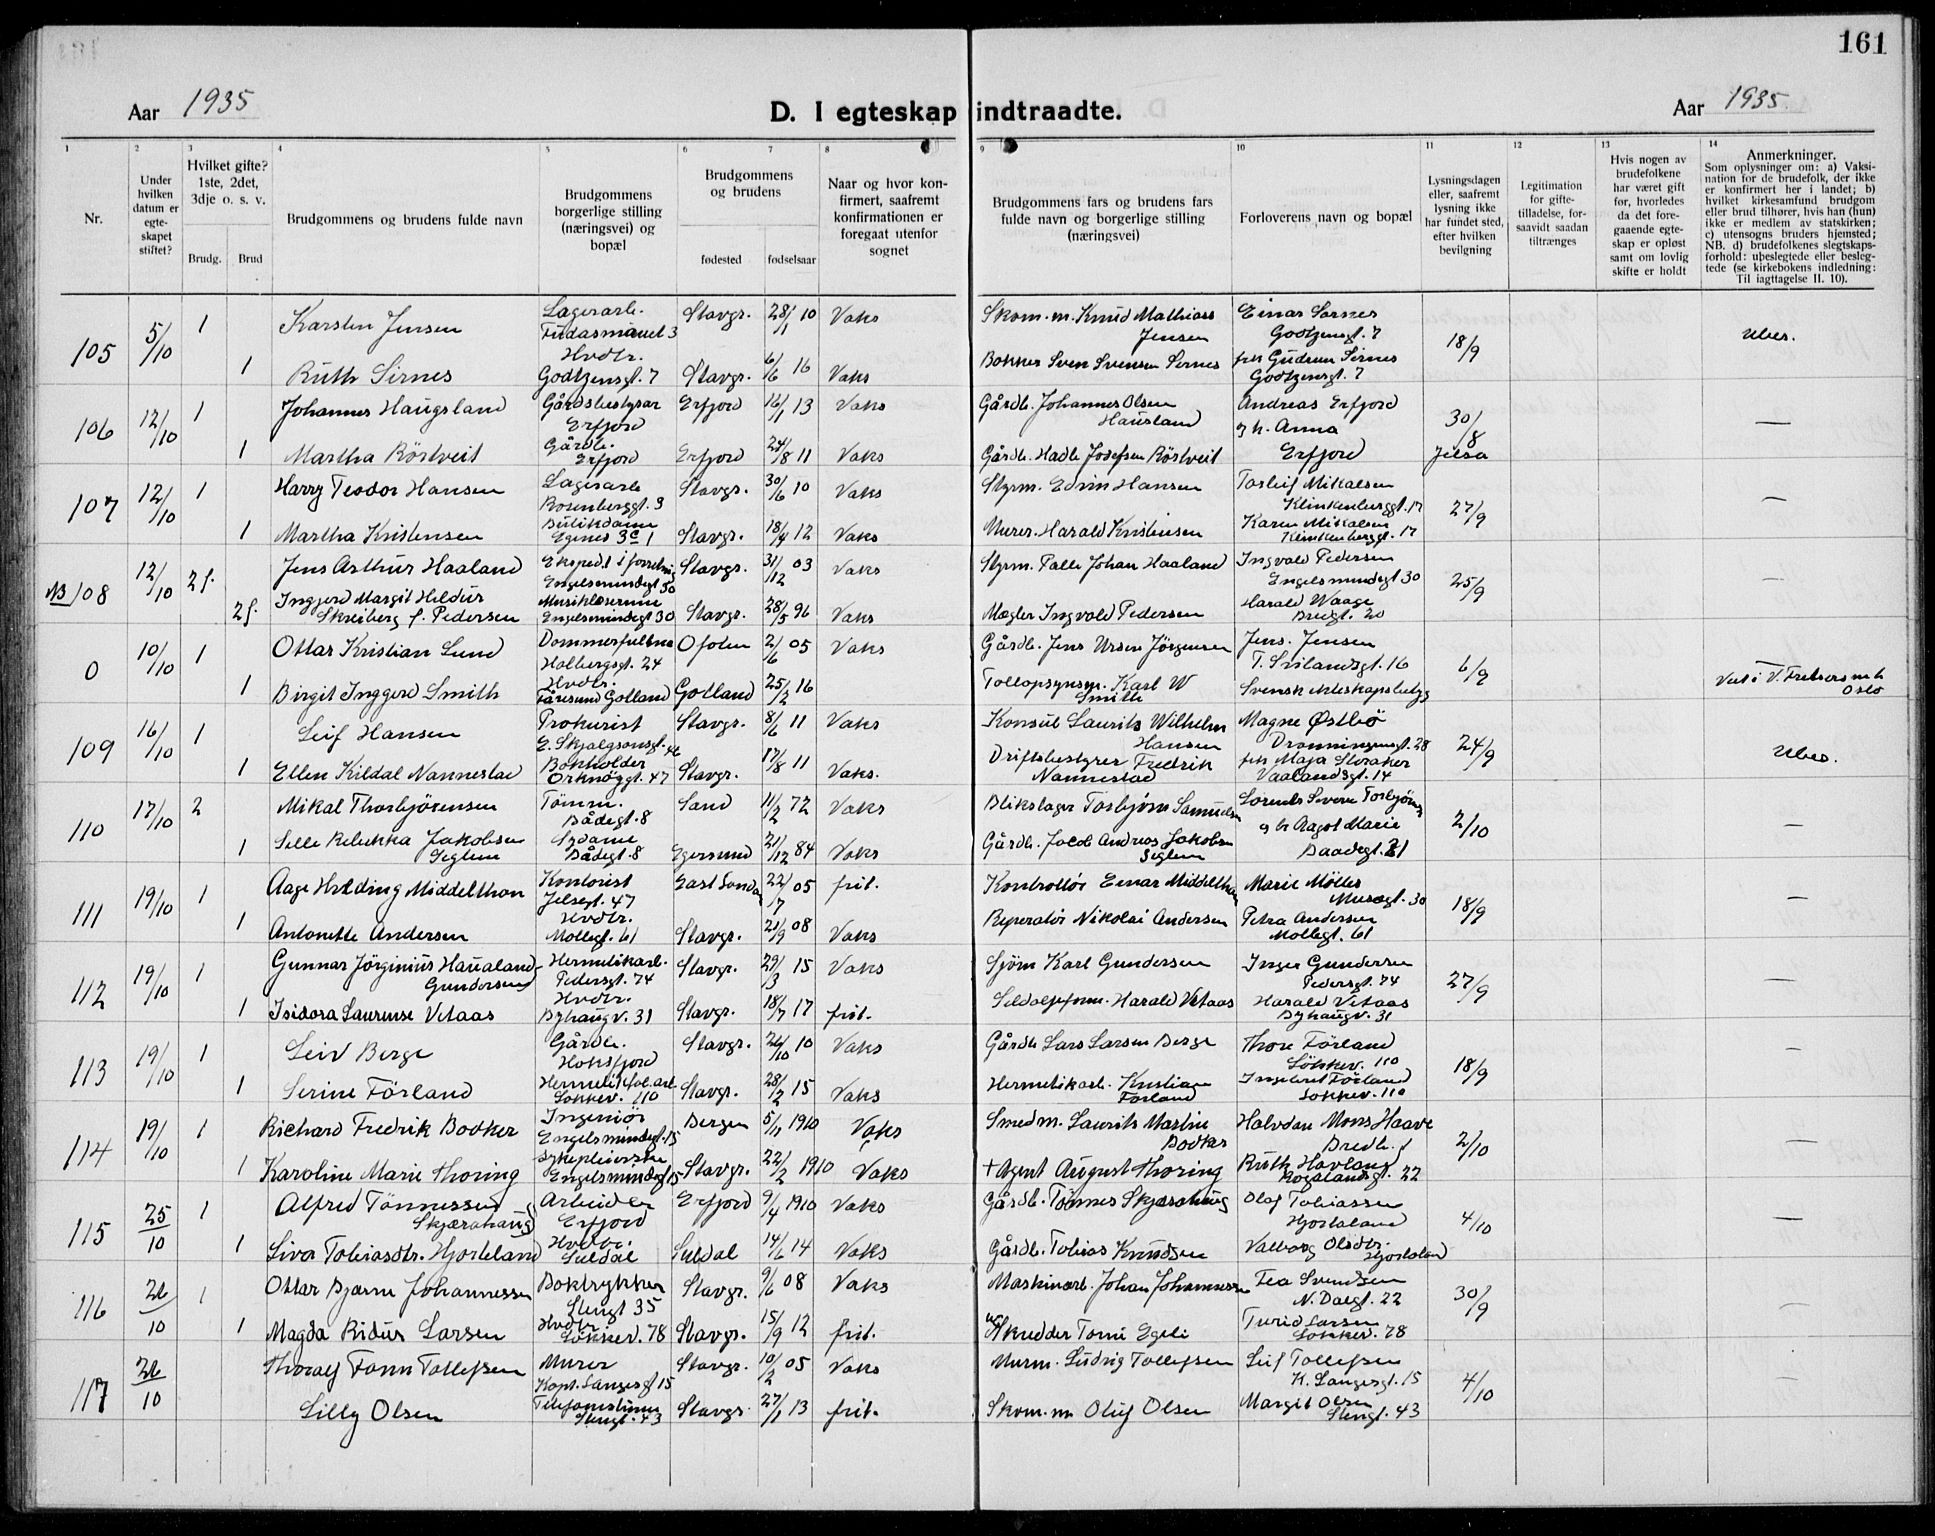 161
Aar 1935
D. I egteskap indtraadte.
Aar 1935.
1
Nr.
2
Under hvilken datum er egteskapet stiftet?
3
Hvilket gifte? 1ste, 2det, 3dje o. s. v.
Brudg. Brud
4
Brudgommens og brudens fulde navn
5
Brudgommens borgerlige stilling (næringsvei) og bopæl
6 7
Brudgommens og brudens
fødested fødselsaar
8
Naar og hvor konfirmert, saafremt konfirmationen er foregaat utenfor sognet
9
Brudgommens fars og brudens fars fulde navn og borgerlige stilling (næringsvei)
10
Forloverens navn og bopæl
11
Lysningsdagen eller, saafremt lysning ikke har fundet sted, efter hvilken bevilgning
12
Legitimation for giftetilladelse, forsaavidt saadan tiltrænges
13
Hvis nogen av brudefolkene har været gift før, hvorledes da det foregaaende egteskap er opløst samt om lovlig skifte er holdt
14
Anmerkninger.
Som oplysninger om: a) Vaksination for de brudefolk, der ikke er konfirmert her i landet; b) hvilket kirkesamfund brudgom eller brud tilhører, hvis han (hun) ikke er medlem av statskirken; c) utensogns bruders hjemsted; NB. d) brudefolkenes slegtskapsforhold: ubeslegtede eller beslegtede (se kirkebokens indledning: Til iagttagelse II. 10).
105 5/10 1 Karsten Jensen Lagerarb. 3 Stavgr. 28/1 10 Vaks Skom. m. Knud Mathias Jensen Einar Sernes Godtzensgt. 7 18/9 Ubes.
1 Ruth Sirnes Hvdtr. Godtzensgt. 7 Stavgr. 6/6 16 Vaks Bøkker Sven Svensen Sirnes frk Gudrun Sirnes Godtzensgt. 7
106 12/10 1 Johannes Haugsland Gårdsbestyrer Erfjord Erfjord 16/1 13 Vaks Gårdb. Johannes Olsen Hausland Andreas Erfjord 30/8 —
1 Martha Röstveit Gårdb. Erfjord Erfjord 24/8 11 Vaks Gårdb. Hadle Josefsen Röstveit g h. Anna Erfjord Jelsa
107 12/10 1 Harry Teodor Hansen Lagerarb Rosenberggt. 3 Stavgr. 30/6 10 Vaks Styrm. Edvin Hansen Torleif Mikalsen Klinkenberggt. 17 27/9 —
1 Martha Kristensen Butikdame Egenes 3c 1 Stavgr. 18/4 12 Vaks Murer. Harald Kristensen Karen Mikalsen Klinkenberggt. 17
NB 108 12/10 2 f. Jens Arthur Haaland Ekspedt i forretning Engelsmindegt 30 Stavgr. 31/12 03 Vaks Styrm. Palle Johan Haaland Ingvald Pedersen Engelsmindegt 30 25/9 —
2 f. Ingjerd Margit Hildur Skreiberg f. Pedersen Musiklærerinne Engelsmindegt 30 Stavgr. 28/5 96 Vaks Mægler Ingvald Pedersen Harald Waage Bredgt. 20
0 10/10 1 Ottar Kristian Lund Dommerfullm Holbergsgt. 24 Ofoten 2/6 05 Vaks Gårdb. Jens Ursin Jörgensen Jens. Jensen T. Smilandsgt. 16 6/9
1 Birgit Inggerd Smith Hvdtr. Fårösund Gotland Gotland 25/2 16 Tollopsynsm. Karl W Smith Svensk Oslo
109 16/10 1 Leif Hansen Prokurist E. Skjalgsonsgt. 46 Stavgr. 8/6 11 Vaks Konsul Laurits Wilhelm Hansen Magne Østbö Dronningensgt. 28 24/9 Ubes.
1 Ellen Kildal Nannestad Bokholder Orknöggt. 47 Stavgr. 17/8 11 Vaks. Driftsbestyrer Fredrik Nannestad frk Maja Storaker Vaalandsgt. 14
110 17/10 2 Mikal Thorbjörensen Tömm. Bådegt. 8 Sand 11/2 72 Vaks Blikslager Torbjörn Samuelsen Lorents Severin Torbjörnsen 2/10 —
1 Sille Rebekka Jakobsen Seglem Sydame Bådegt. 8 Egersund 21/12 84 Vaks Gårdb. Jacob Andreas Jakobsen Seglem g h Aagot Marie Baadegt. 21
111 19/10 1 Aage Hilding Middelthon Kontorist Jelsegt. 47 East London 22/7 05 frit. Kontrollör Einar Middelthon Marie Möller Musegt. 30 18/9 —
1 Antonette Andersen Hvdtr. Mollegt. 61 Stavgr. 21/9 08 Vaks Reperatör Nikolai Andersen Petra Andersen Mollegt. 61
112 19/10 1 Gunnar Jörginius Haualand Gundersen Hermetikarb. Pedersgt. 74 Stavgr. 29/3 15 Vaks Sjöm Karl Gundersen Inger Gundersen Pedersgt. 74 27/9 —
1 Isidora Laurense Vetaas Hvdtr. Byhaugv. 31 Stavgr. 18/7 17 frit. Harald Vetaas Harald Vetaas Byhaugv. 31
113 19/10 1 Leiv Berge Gårdb. Stavgr. 26/10 10 Vaks Gårdb Lars Larsen Berge Thore Förland Lökkev. 110 18/9 —
1 Serine Förland Lökkev. 110 Stavgr. 28/2 15 Vaks Hermetikarb. Kristian Förland Ingeborg Förland Lökkev. 110
114 19/10 1 Richard Fredrik Bodker Ingeniör Engelsmindegt. 15 Bergen 5/11 1910 Vaks Smedm. Laurits Martin Bodker Halvdan Mons Haave Bredb. 1 2/10 —
1 Karoline Marie Thoring Sykepleierske Engelsmindegt 15 Stavgr. 22/2 1910 Vaks + Agent August Thoring Ruth Havland Rogalandsgt. 22
115 25/10 1 Alfred Tönnessen Skjærahaug Arbeider Erfjord Erfjord 9/4 1910 Vaks Gårdb. Tönnes Skjærahaug Olaf Tobiassen Hjorteland 4/10 —
1 Siva Tobiasdtr. Hjorteland Hvdtr. Suldal Suldal 14/6 14 Vaks Gårdb. Tobias Knudsen Valborg Olsdtr. Hjorteland
116 26/10 1 Ottar Bjarne Johannessen Boktrykker Stengt 35 Stavgr. 9/6 08 Vaks Maskinarb. Johan Johannessen Tea Svendsen N. Dalgt. 22 30/9 —
1 Magda Ridus Larsen Hvdtr Lökkev. 78 Stavgr. 15/9 12 frit. Skredder Tomi Egeli Turid Larsen Lökkev. 78
117 26/10 Thoralf Fonn Tollefsen Murer Kapt. Langesgt 15 Stavgr. 10/2 05 Vaks Murm. Ludvig Tollefsen Leif Tollefsen K. Langesgt. 15 4/10 —
Lilly Olsen Telefonistinne Stengt. 43 Stavgr. 27/1 13 frit. Skom. m Oluf Olsen Margit Olsen Stengt. 43